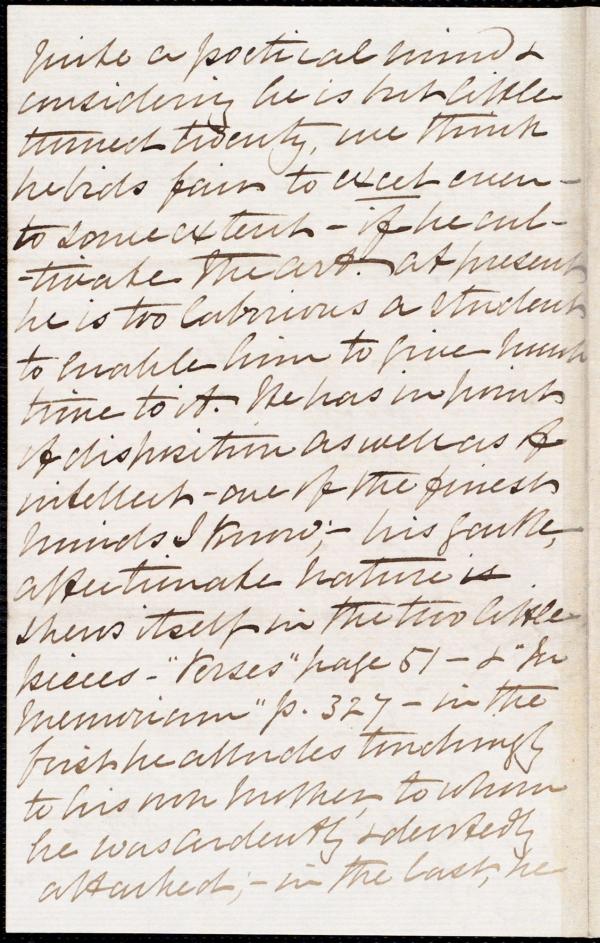 quite a poetical mind &
considering he is but little
turned twenty, we think
he bids fair to excel even -
to some extent - if he cul-
-tivate the art. at present
he is too laborious a student
to enable him to give much
time to it. He has in point
of disposition as well as of
intellect - one of the finest
minds I know; - his gentle,
affectionate nature is
shews itself in the two little
pieces - "Verses" page 51 - & "In
Memoriam" p. 327 - in the
first he alludes touchingly
to his own mother, to whom
he was ardently & devotedly
attached; - in the last, he